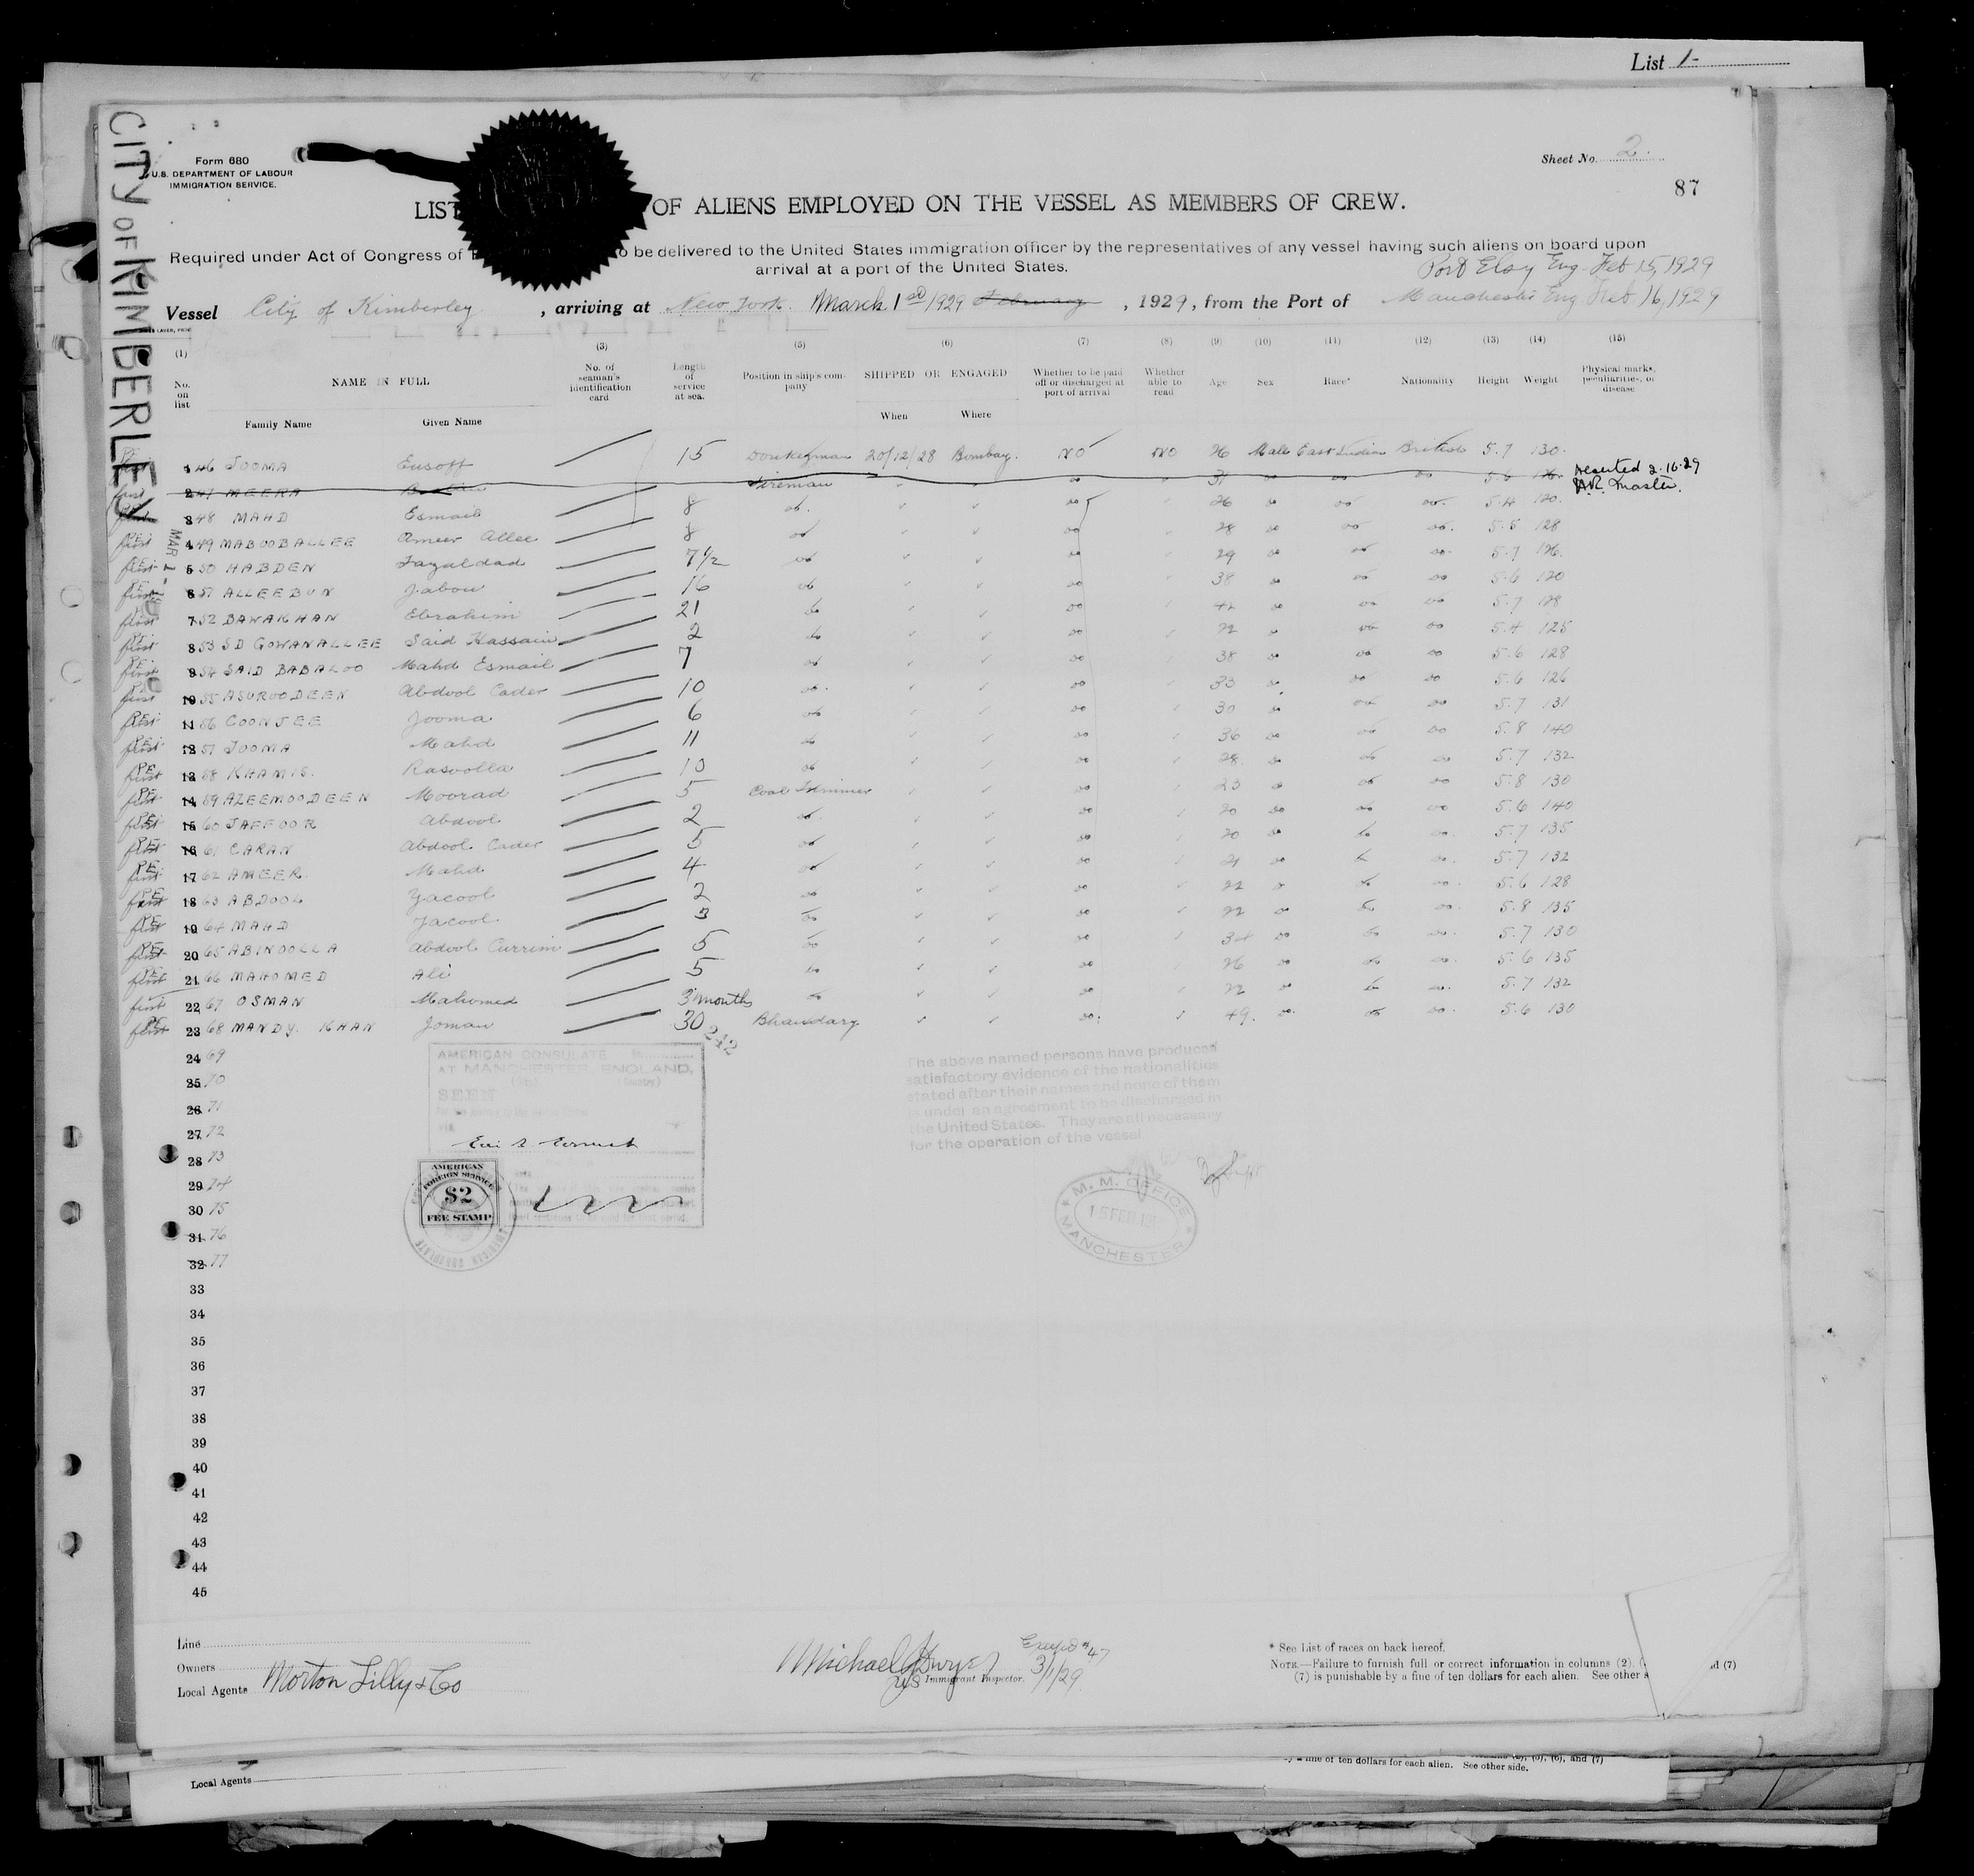 List 1-
CITY OF KIMBERLEY
Form 680
U.S. DEPARTMENT OF LABOUR
IMMIGRATION SERVICE.
Sheet No. 2.
87
LIST OF ALIENS EMPLOYED ON THE VESSEL AS MEMBERS OF CREW.
Required under Act of Congress of be delivered to the United States immigration officer by the representatives of any vessel having such aliens on board upon
arrival at a port of the United States.
Feb 15, 1929
Vessel City of Kimberley, arriving at New York. March 1 1929 February, 1929, from the Port of Manchester Eng Feb 16, 1929
(1) (3) (5) (6) (7) (8) (9) (10) (11) (12) (13) (14) (15)
No. on list
NAME IN FULL
Family Name
Given Name
No. of seaman's identification card
Length of service at sea.
Position in ship's company
SHIPPED OR ENGAGED
When
Where
Whether to be paid off or discharged at port of arrival
Whether able to read
Age
Sex
Race*
Nationality
Height
Weight
Physical marks, peculiarities, or disease
46 JOOMA Eusoff 15 Donkeyman 20/12/28 Bombay. NO NO 26 Male East Indian British 5.7 130
2 47 MEERA Fireman 31 5.6 Deserted 2.16.29
Master.
3 48 MAHD Esmail 8 do. 26 5.4 120
4 49 MABOOBALLEE Ameer Allee 8 do 28 5.5 128
5 50 HABDEN Fazaldad 7½ do 29 5.7 126
6 51 ALLEEBUN Jabou 16 do 38 5.6 120
7 52 BAWAKHAN Ebrahim 21 do 42 5.7 128
8 53 SD GOWANALLEE Said Hassain 2 do 22 5.4 125
9 54 SAID BABALOO Mahd Esmail 7 do 38 5.6 128
10 55 ASUROODEEN Abdool Cader 10 do. 33 5.6 126
11 56 COONJEE Jooma 6 do 30 5.7 131
12 57 JOOMA Mahd 11 do 36 5.8 140
13 58 KHAMIS. Rasoolla 10 do 28 5.7 132
14 59 AZEEMOODEEN Moorad 5 Coal Trimmer 23 5.8 130
15 60 JAFFOOR Abdool 2 do. 20 5.6 140
16 61 CARAN Abdool Cader 5 do 20 5.7 135
17 62 AMEER Mahd 4 do 21 5.7 132
18 63 ABDOOL Yacool 2 do 22 5.6 128
19 64 MAHD Yacool 3 do 22 5.8 135
20 65 ABINOOLLA Abdool Currim 5 do 34 5.7 130
21 66 MAHOMED Ali 5 do 26 5.6 135
22 67 OSMAN Mahomed 3 months do 22 5.7 132
23 68 MANDY. KHAN Joman 30 Bhandary 49. 5.6 130
242
24 69
25 70
26 71
27 72
28 73
29 74
30 75
31 76
32 77
33
34
35
36
37
38
39
40
41
42
43
44
45
MAR 1 -
AMERICAN CONSULATE
AT MANCHESTER, ENGLAND,
(City) (Country)
SEEN
AMERICAN
FOREIGN SERVICE
$2
FEE STAMP
AMERICAN CONSULATE
The above named persons have produced
satisfactory evidence of the nationalities
stated after their names and none of them
is under an agreement to be discharged in
the United States. They are all necessary
for the operation of the vessel
M. M. OFFICE
15 FEB 19
MANCHESTER
Line
Owners
Local Agents Morton Lilly & Co
Michael J Dwyer
Immigrant Inspector.
Except #47
3/1/29
* See List of races on back hereof.
NOTE.—Failure to furnish full or correct information in columns (2),
(7) is punishable by a fine of ten dollars for each alien. See other
d (7)
Local Agents
a fine of ten dollars for each alien. See other side.
(6), and (7)